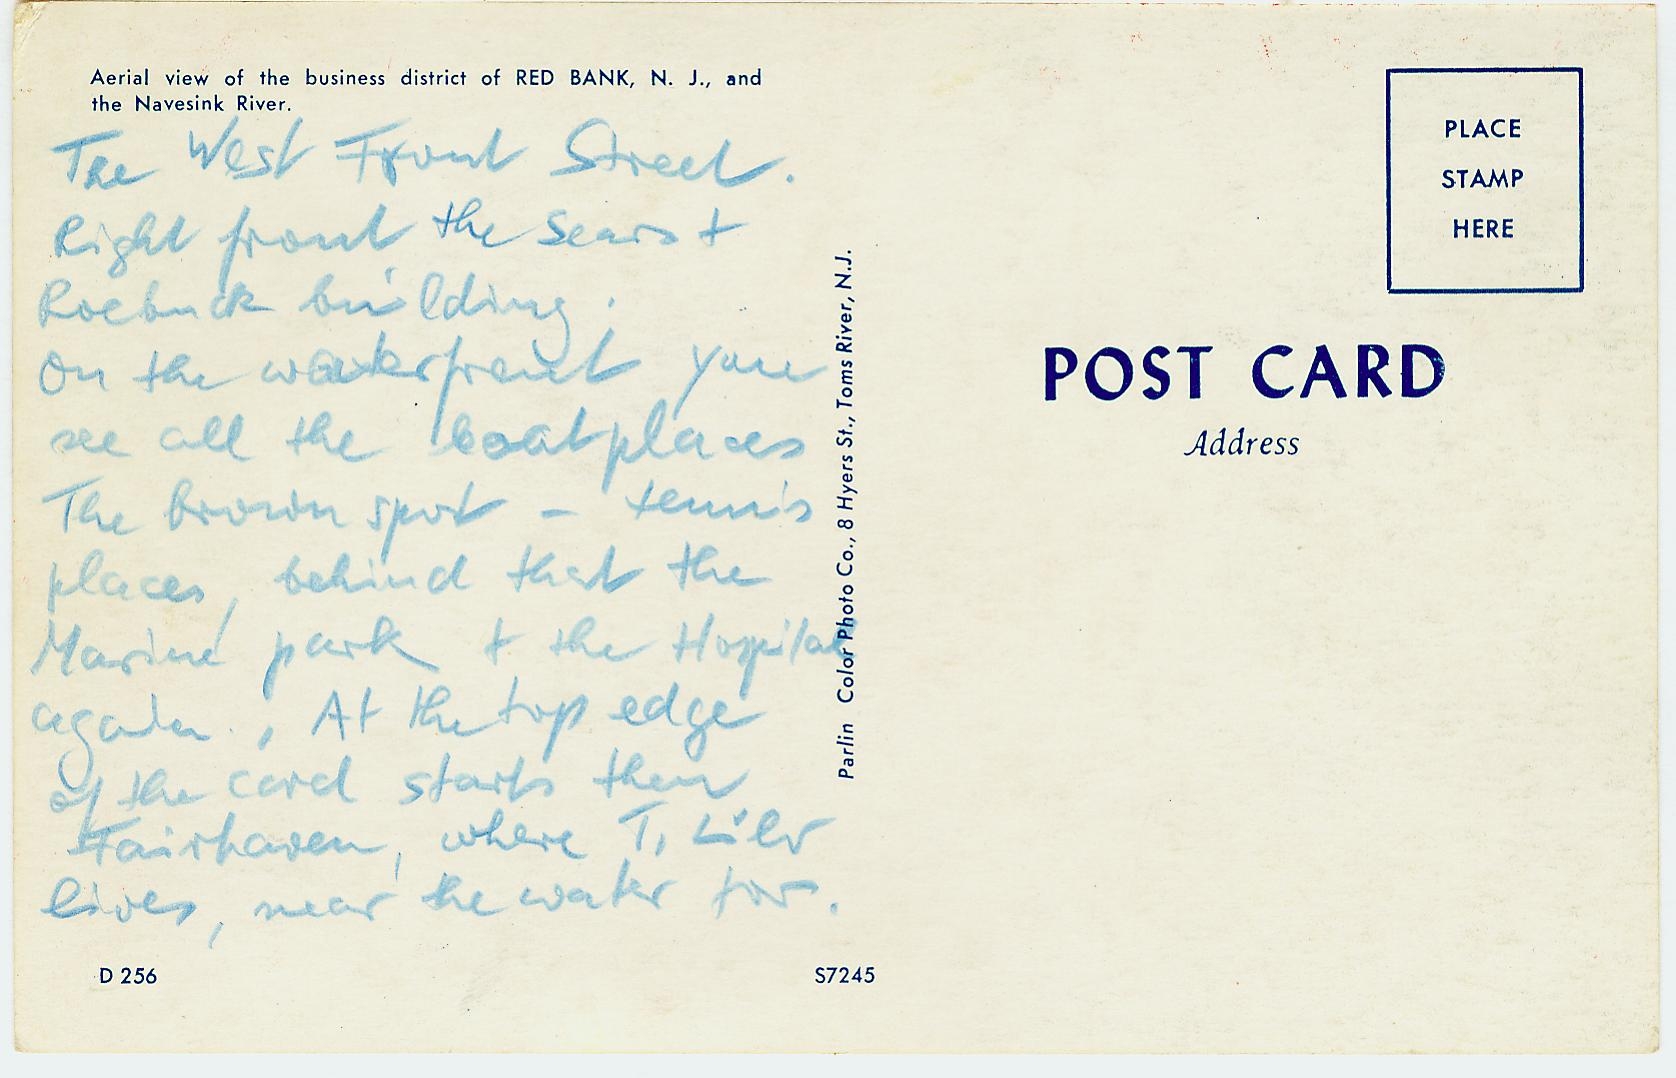 Aerial view of the business district of RED BANK, N. J., and
the Navesink River.
The West Front Street.
Right front the Sears +
Roebuck building.
On the waterfront you
see all the boatplaces
The brown spot – tennis
places, behind that the
Marine park + the Hospital
again., At the top edge
of the card starts then
Fairhaven, where T, Lilo
lives, near the water too.
D 256
S7245
Parlin Color Photo Co., 8 Hyers St., Toms River, N.J.
PLACE
STAMP
HERE
POST CARD
Address